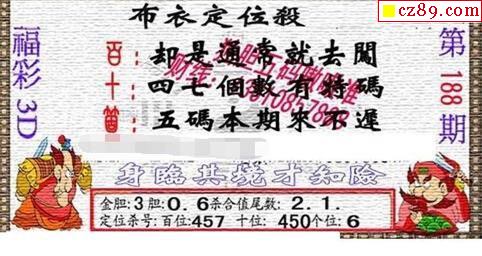 cz89.com
布衣定位殺
福彩3D
第188期
百: 却是通常就去闖
十: 四七個數有特碼
五碼本期來不遲
身臨其境才知險
金胆:3胆:0.6杀合值尾数: 2.1.
定位杀号:百位:457 十位: 450个位:6